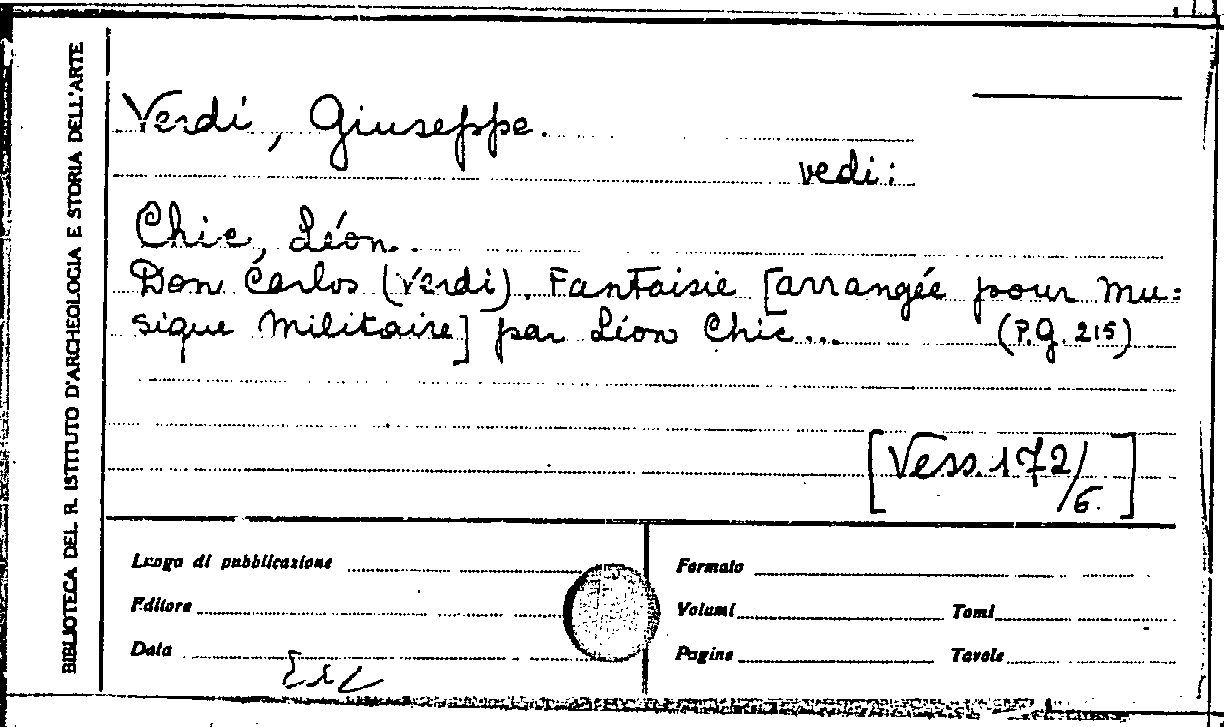 BIBLIOTECA DEL R. ISTITUTO D'ARCHEOLOGIA E STORIA DELL'ARTE
Verdi, Giuseppe.
vedi:
Chic, Léon.
Don Carlos (Verdi). Fantaisie [arrangée pour mu=
sique militaire] par Léon Chic... (P.G. 215)
[Vess. 172/6.]
Luogo di pubblicazione
Editore
Data
Formato
Volumi Tomi
Pagine Tavole